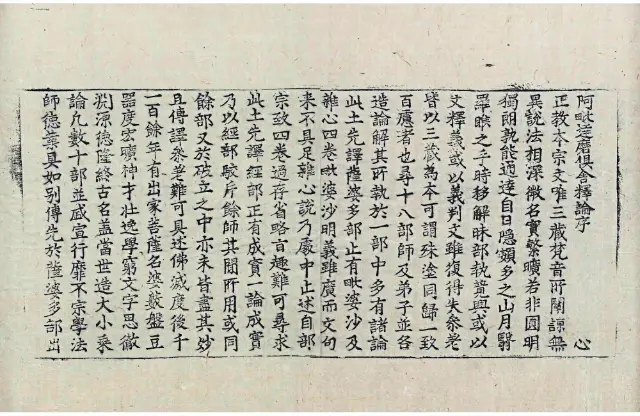 阿毗達磨俱舍釋論序 心
正教本宗文唯三藏梵音所闡諒無
異說法相深微名實繁曠若非圓明
獨朗孰能通達自日隱頞多之山月翳
羅睺之手時移解昧部執競興或以
文釋義或以義判文雖復得失參差
皆以三藏為本可謂殊塗同歸一致
百慮者也尋十八部師及弟子並各
造論解其所執於一部中多有諸論
此土先譯薩婆多部止有毗婆沙及
雜心四卷毗婆沙明義雖廣而文句
來不具足雜心說乃處中止述自部
宗致四卷過存省略旨趣難可尋求
此土先譯經部正有成實一論成實
乃以經部駮斥餘師其間所用或同
餘部又於破立之中亦未皆盡其妙
且傳譯參差難可具述佛滅度後千
一百餘年有出家菩薩名婆藪盤豆
器度宏曠神才壯逸學窮文字思徹
淵源德隆終古名蓋當世造大小乘
論凡數十部並盛宣行靡不宗學法
師德業具如別傳先於薩婆多部出